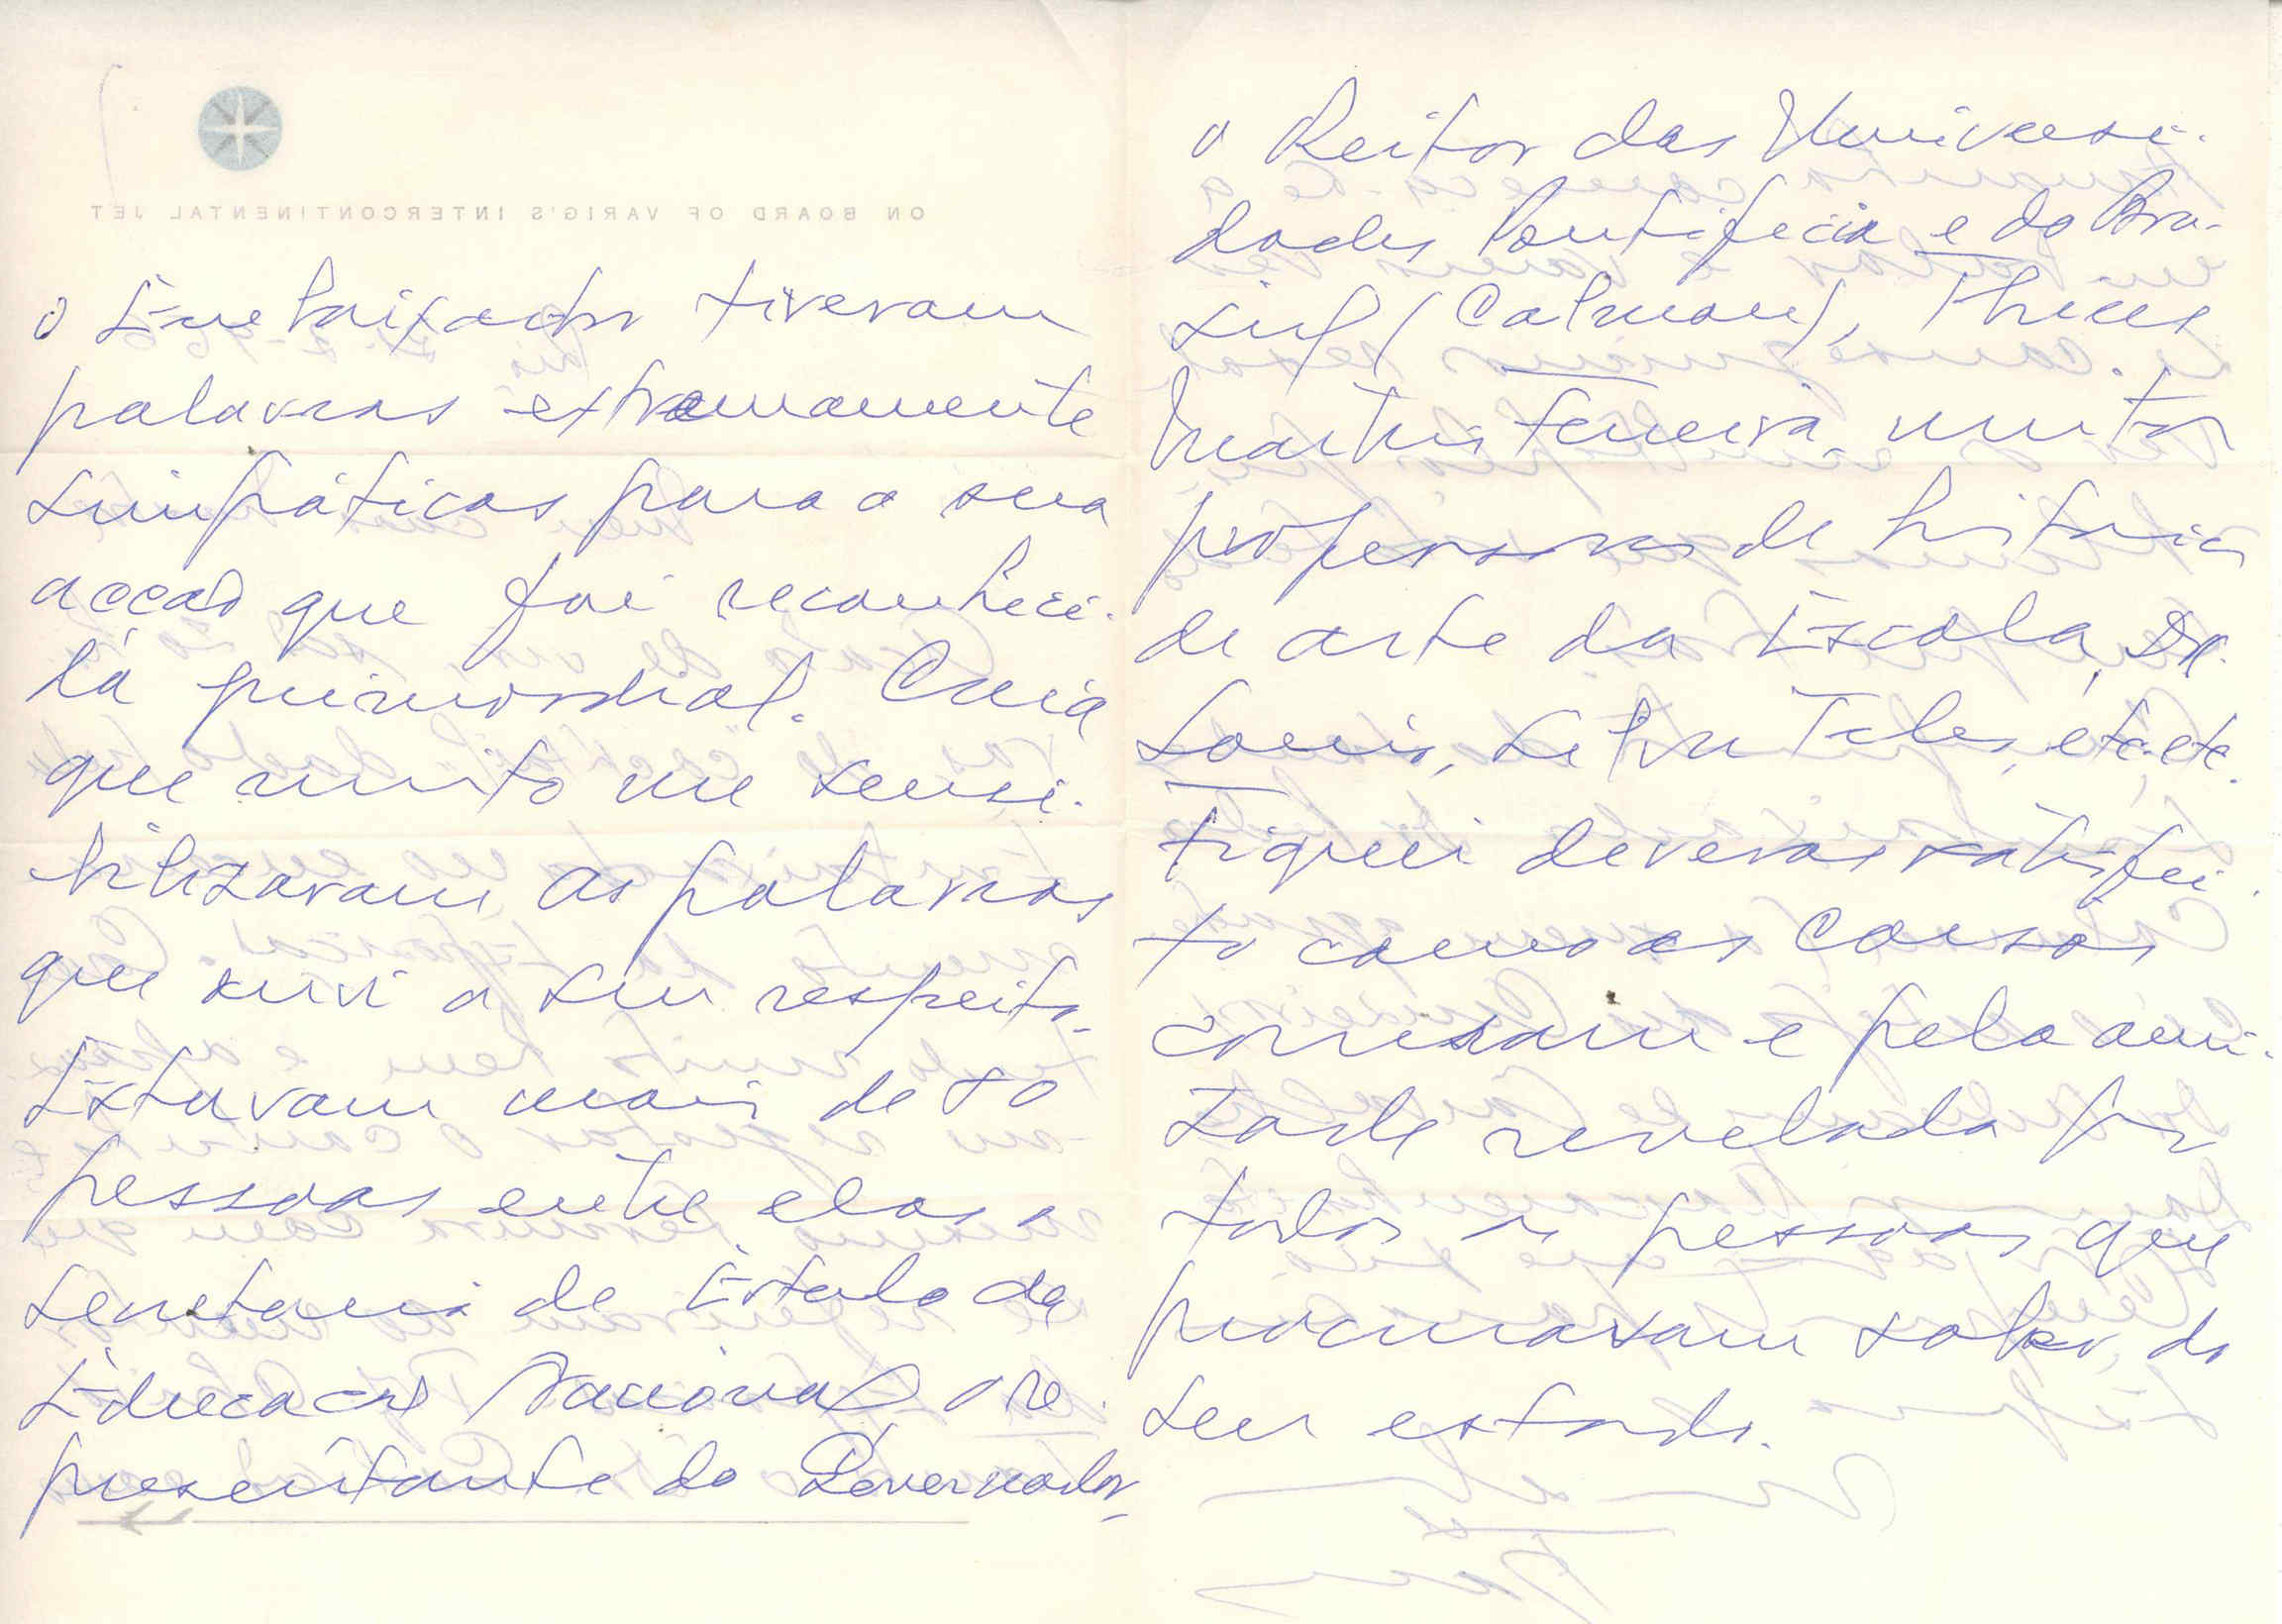 o Embaixador tiveram
palavras extremamente
simpáticas para a sua
acção que foi reconheci-
da primordial. Creia
que muito me sensi-
bilizaram as palavras
que ouvi a seu respeito.
Estavam mais de 80
pessoas entre elas o
Secretario de Estado da
Educação Nacional, o re-
presentante do Governador,
o Reitor das Universi-
dades Pontificia e do Bra-
sil (Calmon), Thiers
Martins Ferreira, muitos
professores de historia
de arte da Escola, Dr.
Souis, Silva Teles, etc. etc.
Fiquei deveras satisfei-
to como as cousas
correram e pela ami-
zade revelada por
todas as pessoas que
procuravam saber do
seu estado.
ON BOARD OF VARIG'S INTERCONTINENTAL JET